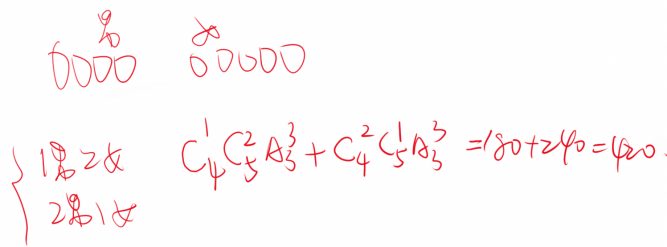 男 女
0000 00000
1男2女 C₄¹C₅²A₃³+C₄²C₅¹A₃³=180+240=420.
2男1女